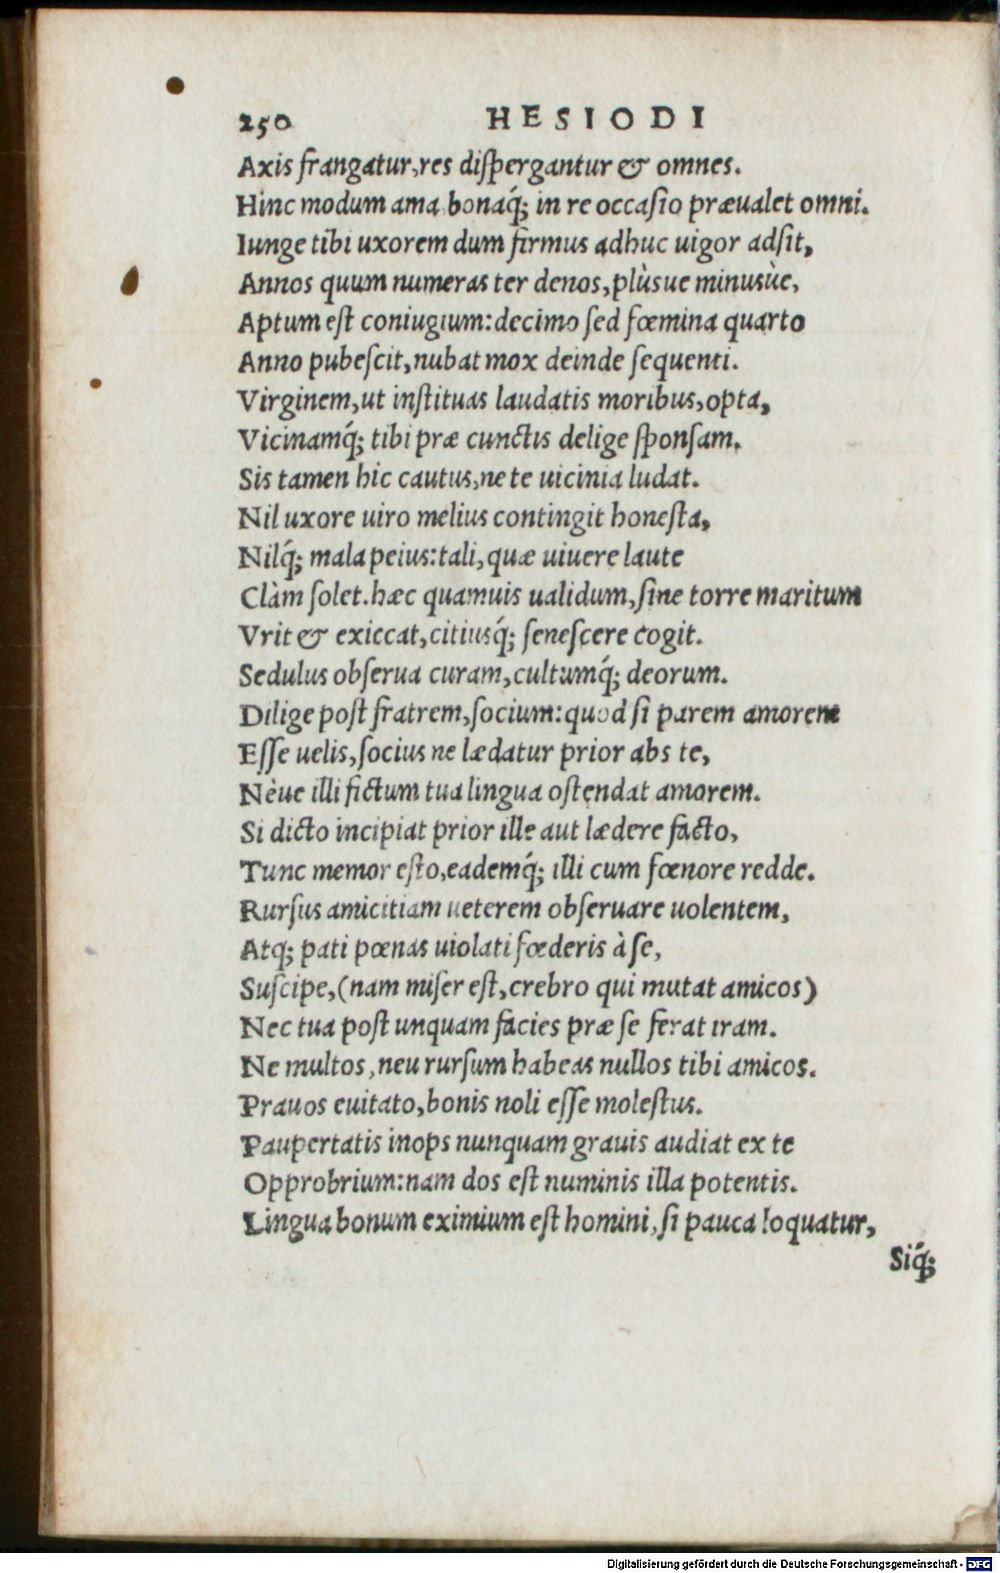 250 HESIODI
Axis frangatur, res diſpergantur & omnes.
Hinc modum ama bonaq́; in re occaſio præualet omni.
Iunge tibi uxorem dum firmus adhuc uigor adſit,
Annos quum numeras ter denos, plùsue minusùe,
Aptum eſt coniugium: decimo ſed fœmina quarto
Anno pubeſcit, nubat mox deinde ſequenti.
Virginem, ut inſtituas laudatis moribus, opta,
Vicinamq́; tibi præ cunctis delige ſponſam.
Sis tamen hic cautus, ne te uicinia ludat.
Nil uxore uiro melius contingit honeſta,
Nilq́; mala peius: tali, quæ uiuere laute
Clàm ſolet. hæc quamuis ualidum, ſine torre maritum
Vrit & exiccat, citiusq́; ſeneſcere cogit.
Sedulus obſerua curam, cultumq́; deorum.
Dilige poſt fratrem, ſocium: quod ſi parem amorem
Eſſe uelis, ſocius ne lædatur prior abs te,
Nèue illi fictum tua lingua oſtendat amorem.
Si dicto incipiat prior ille aut lædere facto,
Tunc memor eſto, eademq́; illi cum fœnore redde.
Rurſus amicitiam ueterem obſeruare uolentem,
Atq; pati pœnas uiolati fœderis à ſe,
Suſcipe, (nam miſer eſt, crebro qui mutat amicos)
Nec tua poſt unquam facies præ ſe ferat iram.
Ne multos, neu rurſum habeas nullos tibi amicos.
Prauos euitato, bonis noli eſſe moleſtus.
Paupertatis inops nunquam grauis audiat ex te
Opprobrium: nam dos eſt numinis illa potentis.
Lingua bonum eximium eſt homini, ſi pauca loquatur,
Siq́;
Digitalisierung gefördert durch die Deutsche Forschungsgemeinschaft - DFG